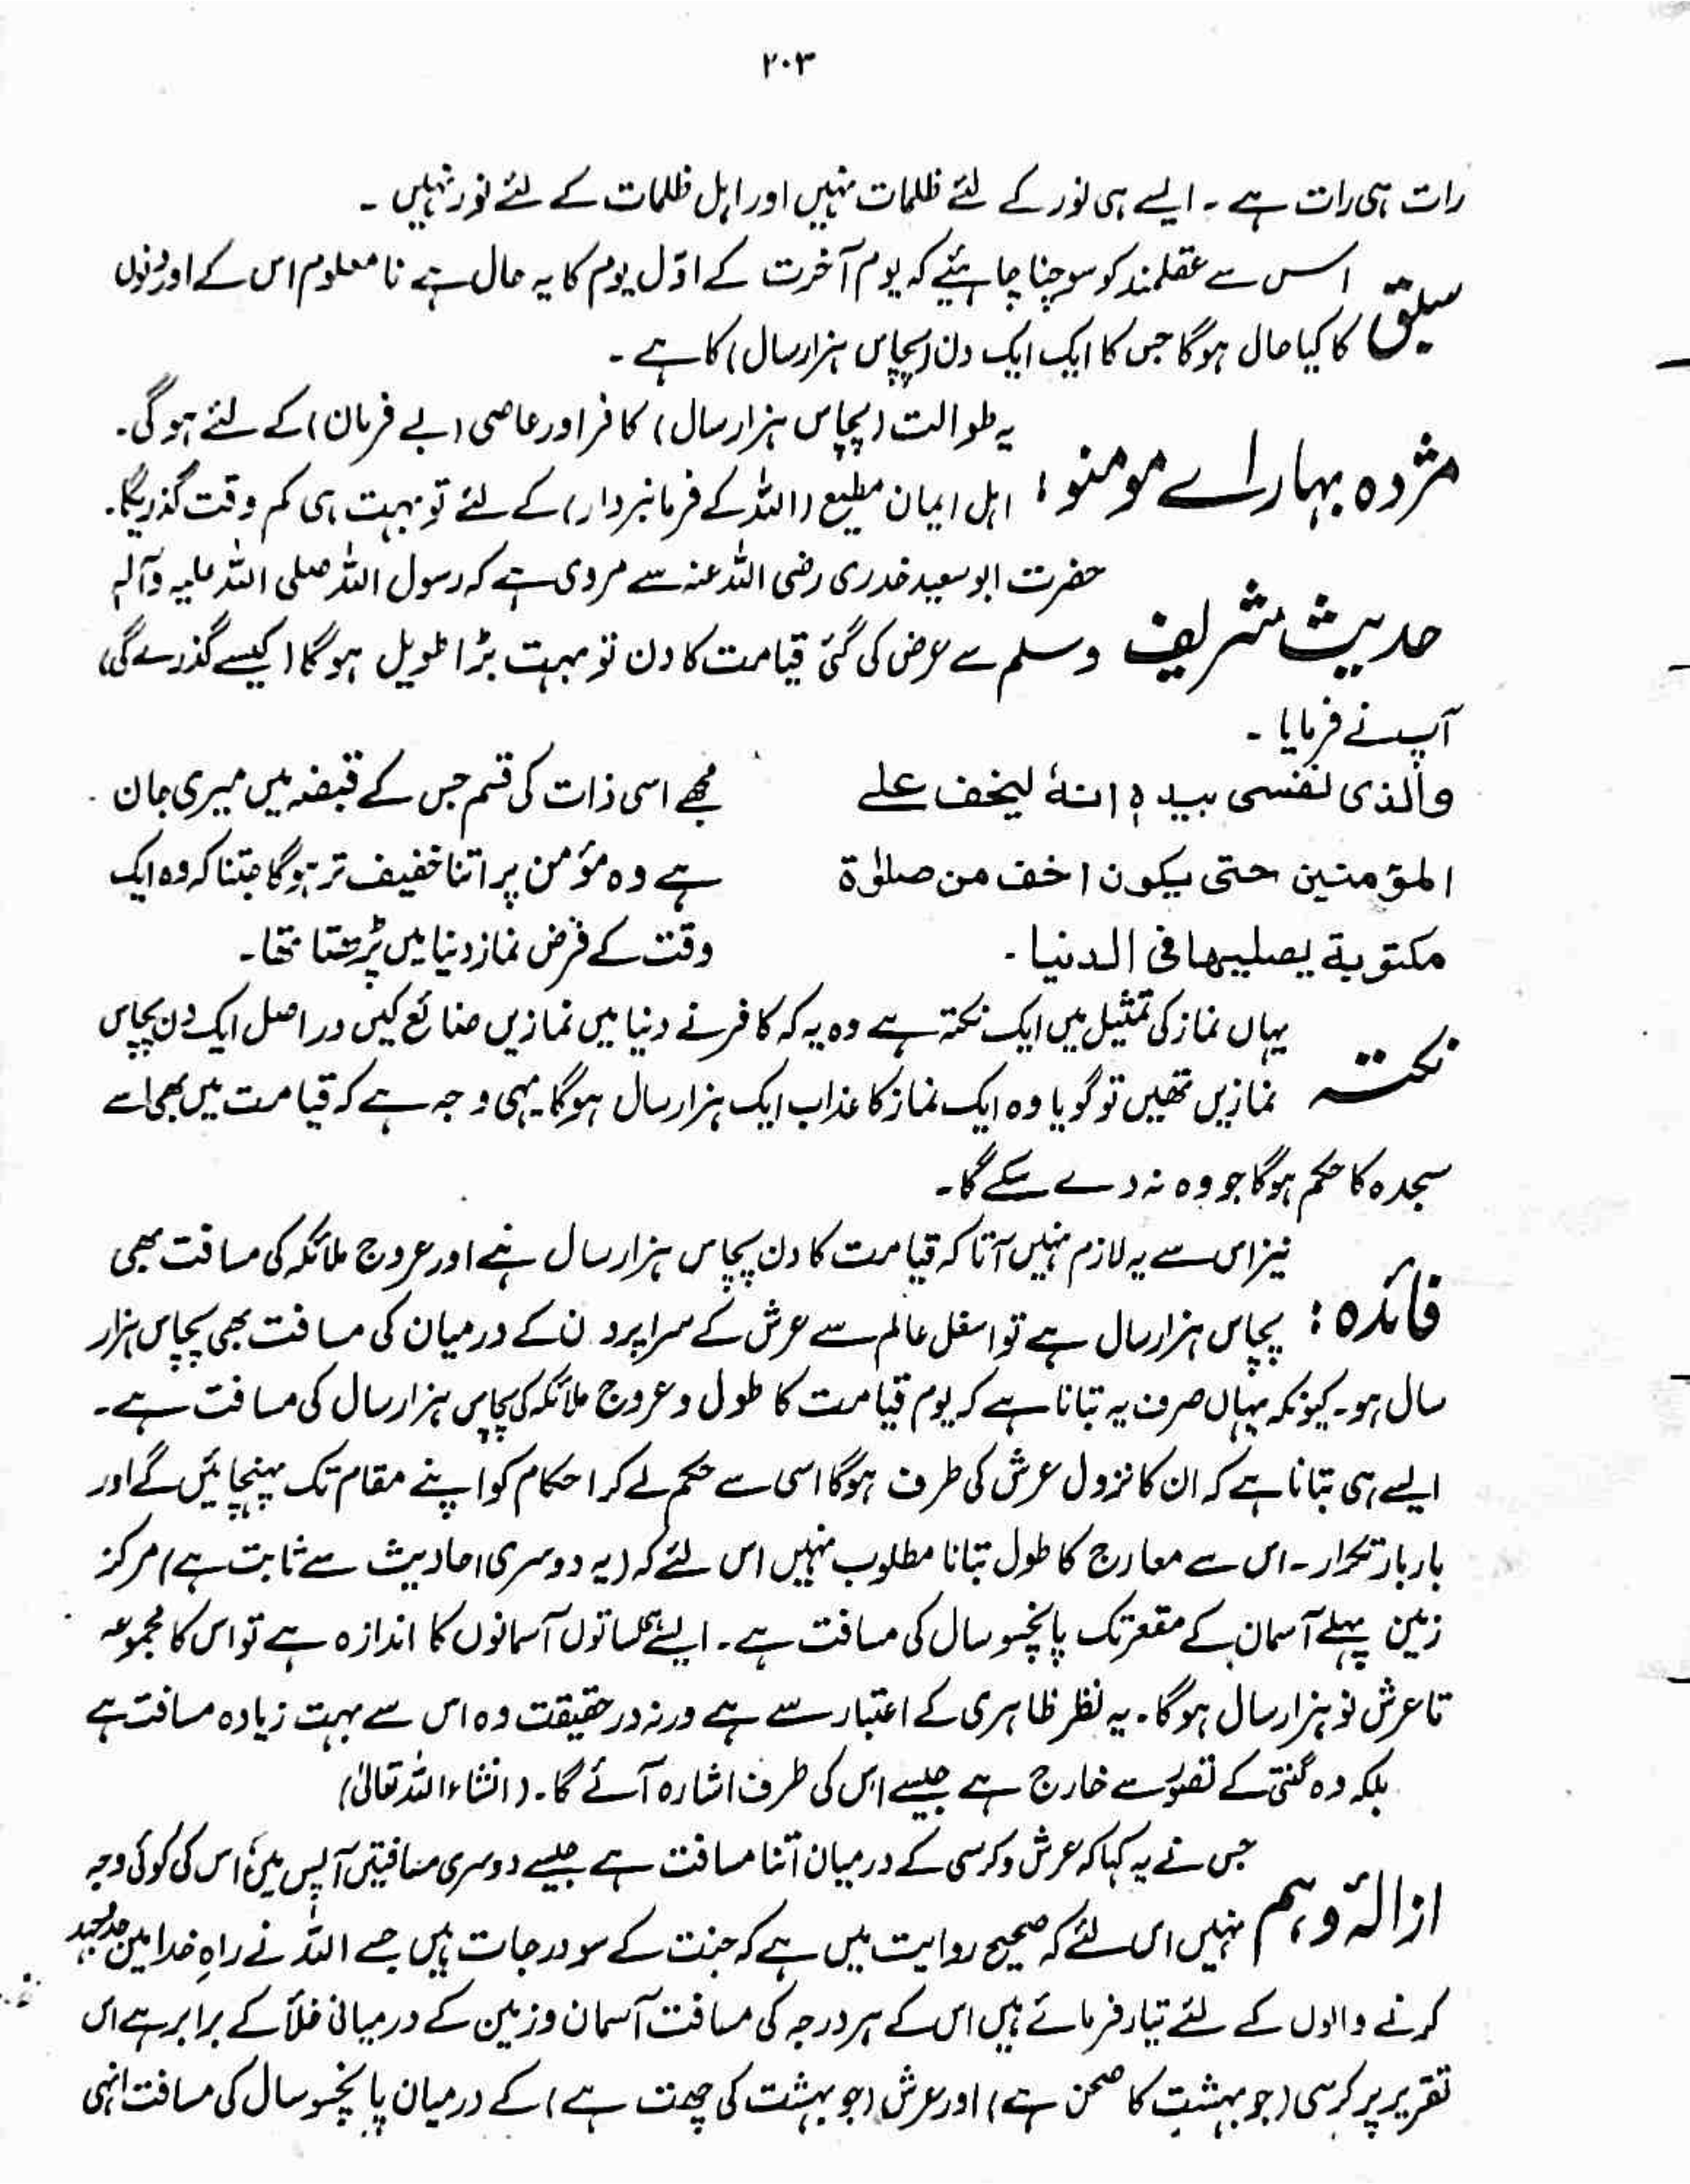 ۲۰۳
رات ہی رات ہے ۔ ایسے ہی نور کے لئے ظلمات نہیں اور اہل ظلمات کے لئے نور نہیں ۔
سبق
اس سے عقلمند کو سوچنا چاہئیے کہ یوم آخرت کے اوّل یوم کا یہ حال ہے نا معلوم اس کے اور دنوں
کا کیا حال ہوگا جس کا ایک ایک دن (پچاس ہزار سال) کا ہے ۔
مژدہ بہار اے مومنو :
یہ طوالت (پچاس ہزار سال) کافر اور عاصی (بے فرمان) کے لئے ہوگی ۔
اہل ایمان مطیع (اللہ کے فرمانبردار) کے لئے تو بہت ہی کم وقت گذریگا ۔
حدیث شریف
حضرت ابو سعید خدری رضی اللہ عنہ سے مروی ہے کہ رسول اللہ صلی اللہ علیہ وآلہٖ
وسلم سے عرض کی گئی قیامت کا دن تو بہت بڑا طویل ہوگا (کیسے گذرے گی)
آپ نے فرمایا ۔
والذی نفسی بیدہ انہٗ لیخفف علے
المؤمنین حتی یکون اخف من صلوٰۃ
مکتوبۃ یصلیہا فی الدنیا ۔
مجھے اسی ذات کی قسم جس کے قبضہ میں میری جان
ہے وہ مؤمن پر اتنا خفیف تر ہوگا جتنا کہ وہ ایک
وقت کے فرض نماز دنیا میں پڑھتا تھا ۔
نکتہ
یہاں نماز کی تمثیل میں ایک نکتہ ہے وہ یہ کہ کافر نے دنیا میں نمازیں ضائع کیں دراصل ایک دن پچاس
نمازیں تھیں تو گویا وہ ایک نماز کا عذاب ایک ہزار سال ہوگا یہی وجہ ہے کہ قیامت میں بھی اسے
سجدہ کا حکم ہوگا جو وہ نہ دے سکے گا ۔
فائدہ :
نیز اس سے یہ لازم نہیں آتا کہ قیامت کا دن پچاس ہزار سال ہے اور عروج ملائکہ کی مسافت بھی
پچاس ہزار سال ہے تو اسفل عالم سے عرش کے سراپردن کے درمیان کی مسافت بھی پچاس ہزار
سال ہو ۔ کیونکہ یہاں صرف یہ بتانا ہے کہ یوم قیامت کا طول و عروج ملائکہ کی پچاس ہزار سال کی مسافت ہے ۔
ایسے ہی بتانا ہے کہ ان کا نزول عرش کی طرف ہوگا اسی سے حکم لے کر احکام کو اپنے مقام تک پہنچائیں گے اور
بار بار تکرار ۔ اس سے معارج کا طول بتانا مطلوب نہیں اس لئے کہ (یہ دوسری احادیث سے ثابت ہے) مرکز
زمین پہلے آسمان کے مقعر تک پانچسو سال کی مسافت ہے ۔ ایسے ہی ساتوں آسمانوں کا اندازہ ہے تو اس کا مجموعہ
تا عرش نو ہزار سال ہوگا ۔ یہ نظر ظاہری کے اعتبار سے ہے ورنہ درحقیقت وہ اس سے بہت زیادہ مسافت ہے
بلکہ وہ گنتی کے تصوّر سے خارج ہے جیسے اس کی طرف اشارہ آئے گا ۔ (انشاء اللہ تعالیٰ)
ازالۂ وہم
جس نے یہ کہا کہ عرش و کرسی کے درمیان اتنا مسافت ہے جیسے دوسری مسافتیں آپس میں، اس کی کوئی وجہ
نہیں اس لئے کہ صحیح روایت میں ہے کہ جنت کے سو درجات ہیں جسے اللہ نے راہِ خدا میں جدوجہد
کرنے والوں کے لئے تیار فرمائے ہیں اس کے ہر درجہ کی مسافت آسمان و زمین کے درمیانی خلأ کے برابر ہے اس
تقریر پر کرسی (جو بہشت کا صحن ہے) اور عرش (جو بہشت کی چھت ہے) کے درمیان پانچسو سال کی مسافت انہی